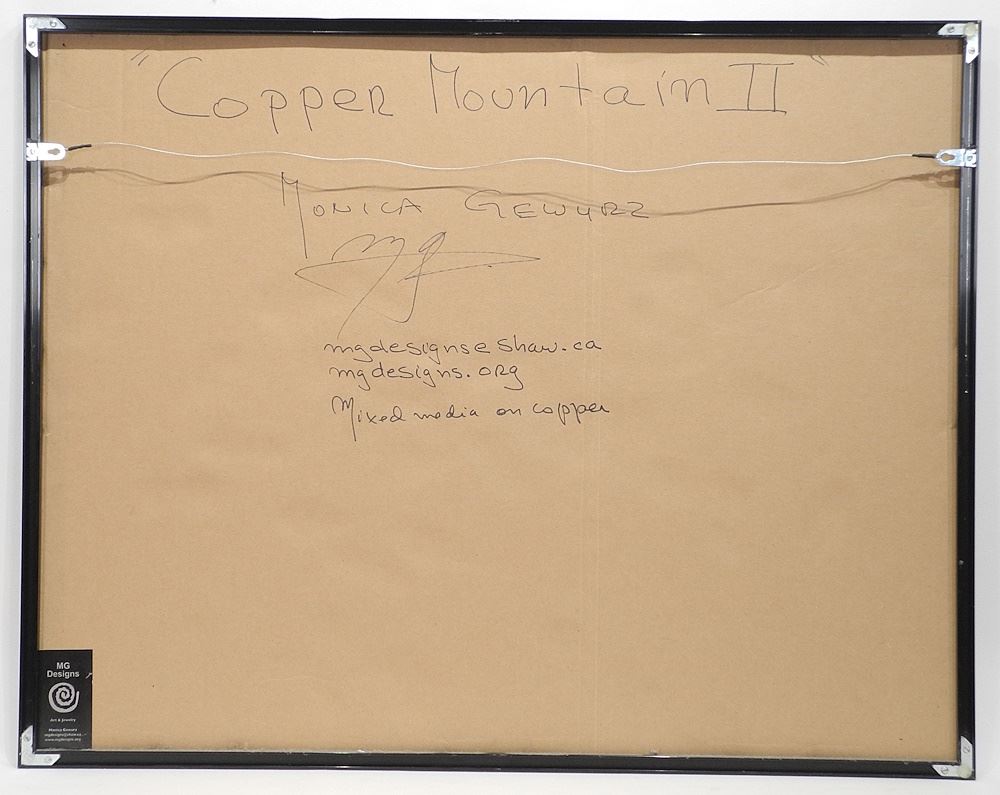 "Copper Mountain II"
Monica Gewurz
mg
mgdesigns@shaw.ca
mgdesigns.org
Mixed media on copper
MG
Designs
Art & Jewelry
Monica Gewurz
mgdesigns@shaw.ca
www.mgdesigns.org